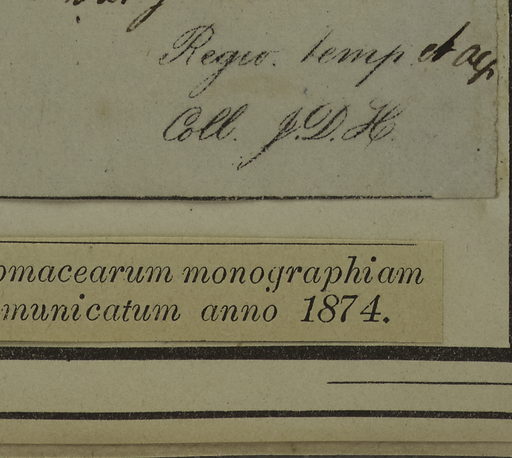 Regio. temp et alp
Coll. J.D.H.
omacearum monographiam
municatum anno 1874.